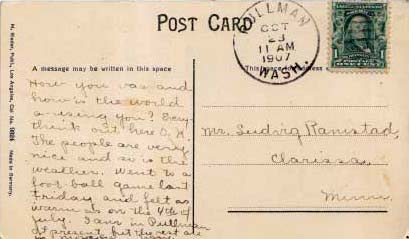 POST CARD
PULLMAN
OCT
23
11 AM
1907
WASH.
1
A message may be written in this space
This space for address
M. Rieder, Publ., Los Angeles, Cal. No.
Made in Germany.
How you vas and
how is the world
a using you? Every
think out here O.K.
The people are very
nice and so is the
weather. Went to a
foot ball game last
Friday and felt as
warm as on the 4th of
July. I am in Pullman
at present but the rest are
Mr. Ludvig Ramstad,
Clarissa,
Minn.